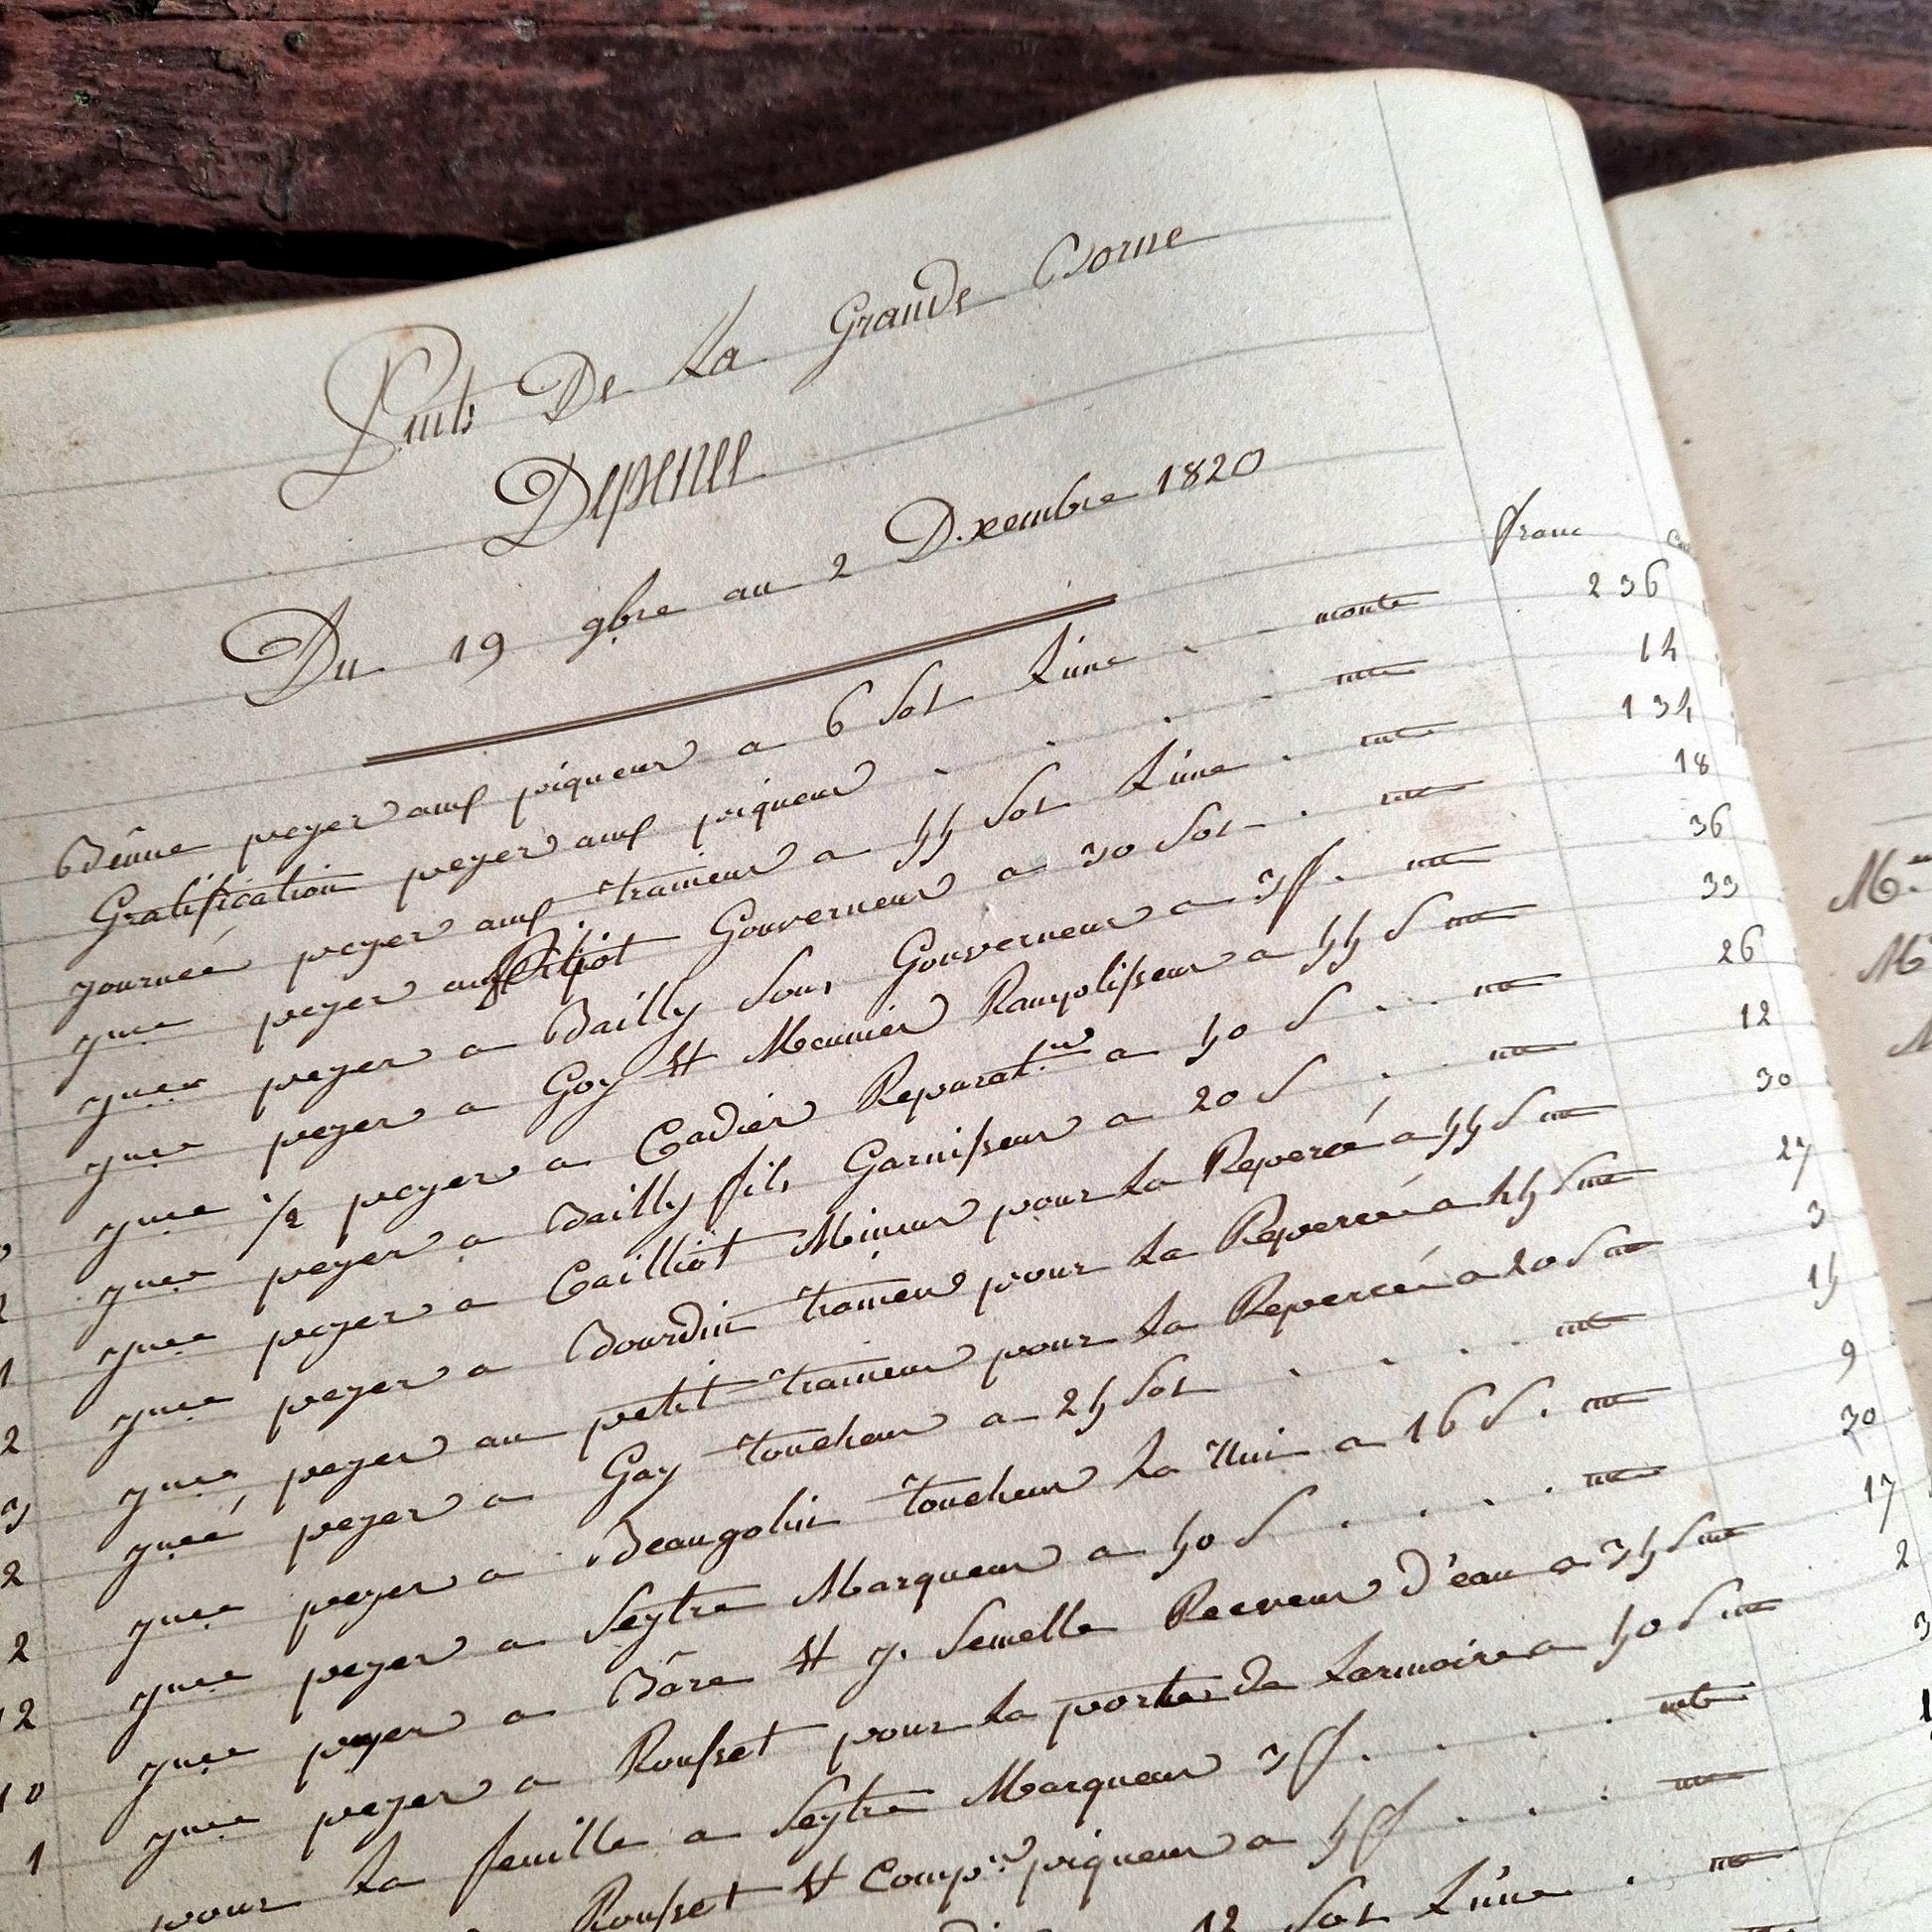 Puits De La Grande Borne
Depense
Du 19 9bre au 2 Dxembre 1820
franc
Bênne peyer aux piqueur a 6 Sol L'une monte 236
Gratification peyer aux piqueur mte 14
journeé peyer aux traineur a 45 Sol L'une mte 134
jnee peyer Gouverneur a 30 Sol mte 18
jnee peyer a Bailly Sous Gouverneur a 3 ff mte 36
jnee peyer a Goy et Meunier Ramplisseur a 55 S mte 33
jnee 1/2 peyer a Cadier Reparat.ur a 50 S mte 26
jnee peyer a Bailly fils Garnisseur a 20 S mte 12
jnee peyer a Cailliot Mineur pour la Reperceé a 55 S mte 30
jnee peyer a Bourdin traineur pour La Reperceé a 45 S mte 27
jnee peyer au petit traineur pour La Reperceé a 20 S mte 3
jneé peyer a Gay toucheur a 25 Sol mte 15
jnee peyer a Beaugelin toucheur La Nui a 16 S mte 9
jnee peyer a Seytre Marqueur a 50 S mte 30
jnee peyer a Bâre et J. Semelle Receveur D'eau a 35 S mte 17
jnee peyer a Rousset pour La porte de Larmoire a 50 S mte 2
pour La feuille a Seytre Marqueur 3 ff mte 3
Rousset et Comp.n piqueur a 5 ff mte
12 Sol L'une mte
2
2
2
12
10
1
M
M